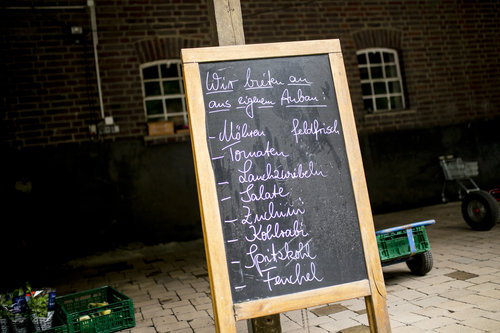 Wir bieten an
aus eigenem Anbau:
- Möhren feldfrisch
- Tomaten
- Lauchzwiebeln
- Salate
- Zucchini
- Kohlrabi
- Spitzkohl
- Fenchel